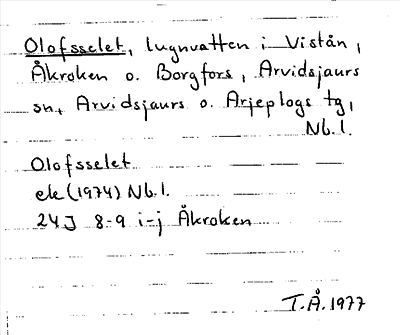 Olofsselet, lugnvatten i Vistån,
Åkroken o. Borgfors, Arvidsjaurs
sn, Arvidsjaurs o. Arjeplogs tg,
Nb. l.
Olofsselet
ek (1974) Nb. l.
24J 8-9 i-j Åkroken
T.Å. 1977